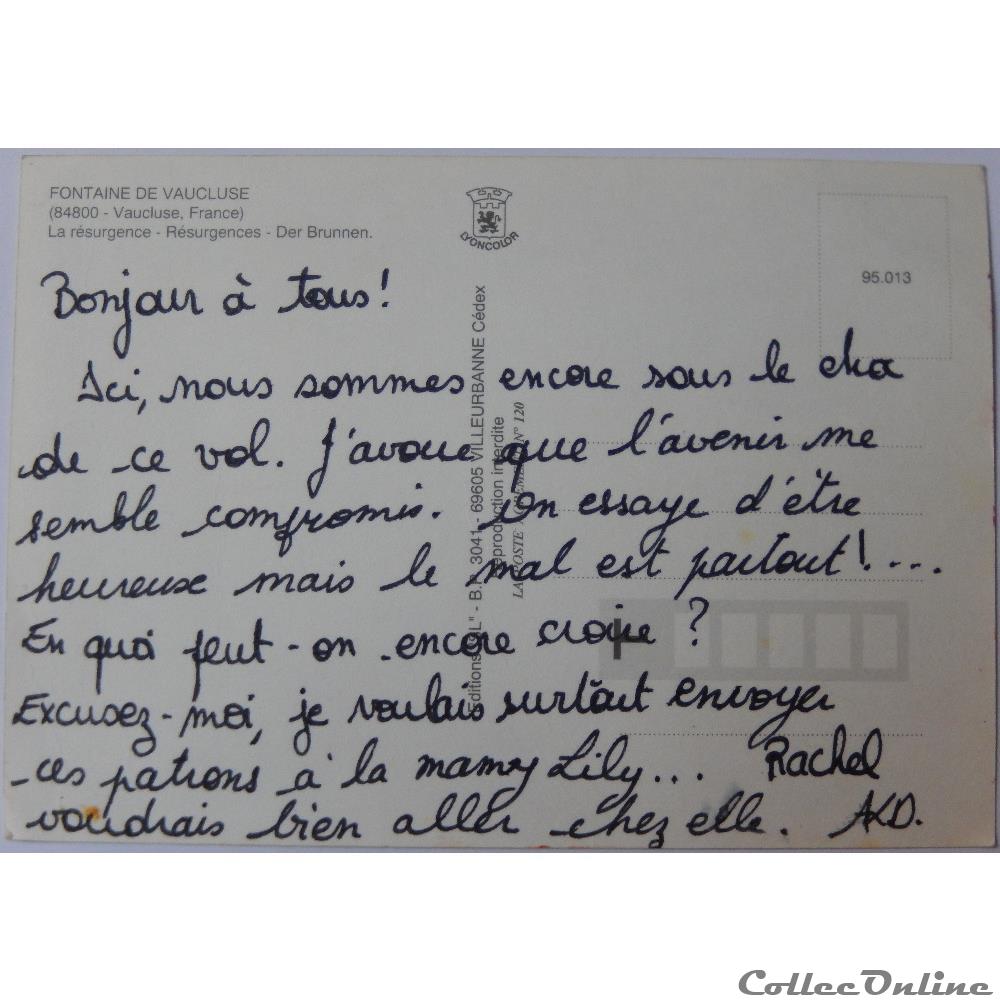 FONTAINE DE VAUCLUSE
(84800 - Vaucluse, France)
La résurgence - Résurgences - Der Brunnen.
LYONCOLOR
95.013
Bonjour à tous !
Ici, nous sommes encore sous le choc
de ce vol. J'avoue que l'avenir me
semble compromis. On essaye d'être
heureuse mais le mal est partout !....
En quoi peut-on encore croire ?
Excusez-moi, je voulais surtout envoyer
ces patrons à la mamy Lily... Rachel
voudrais bien aller chez elle. AKD.
Editions "L" - B.P. 3041 - 69605 VILLEURBANNE Cédex
Reproduction interdite
LA POSTE N° 120
CollecOnline